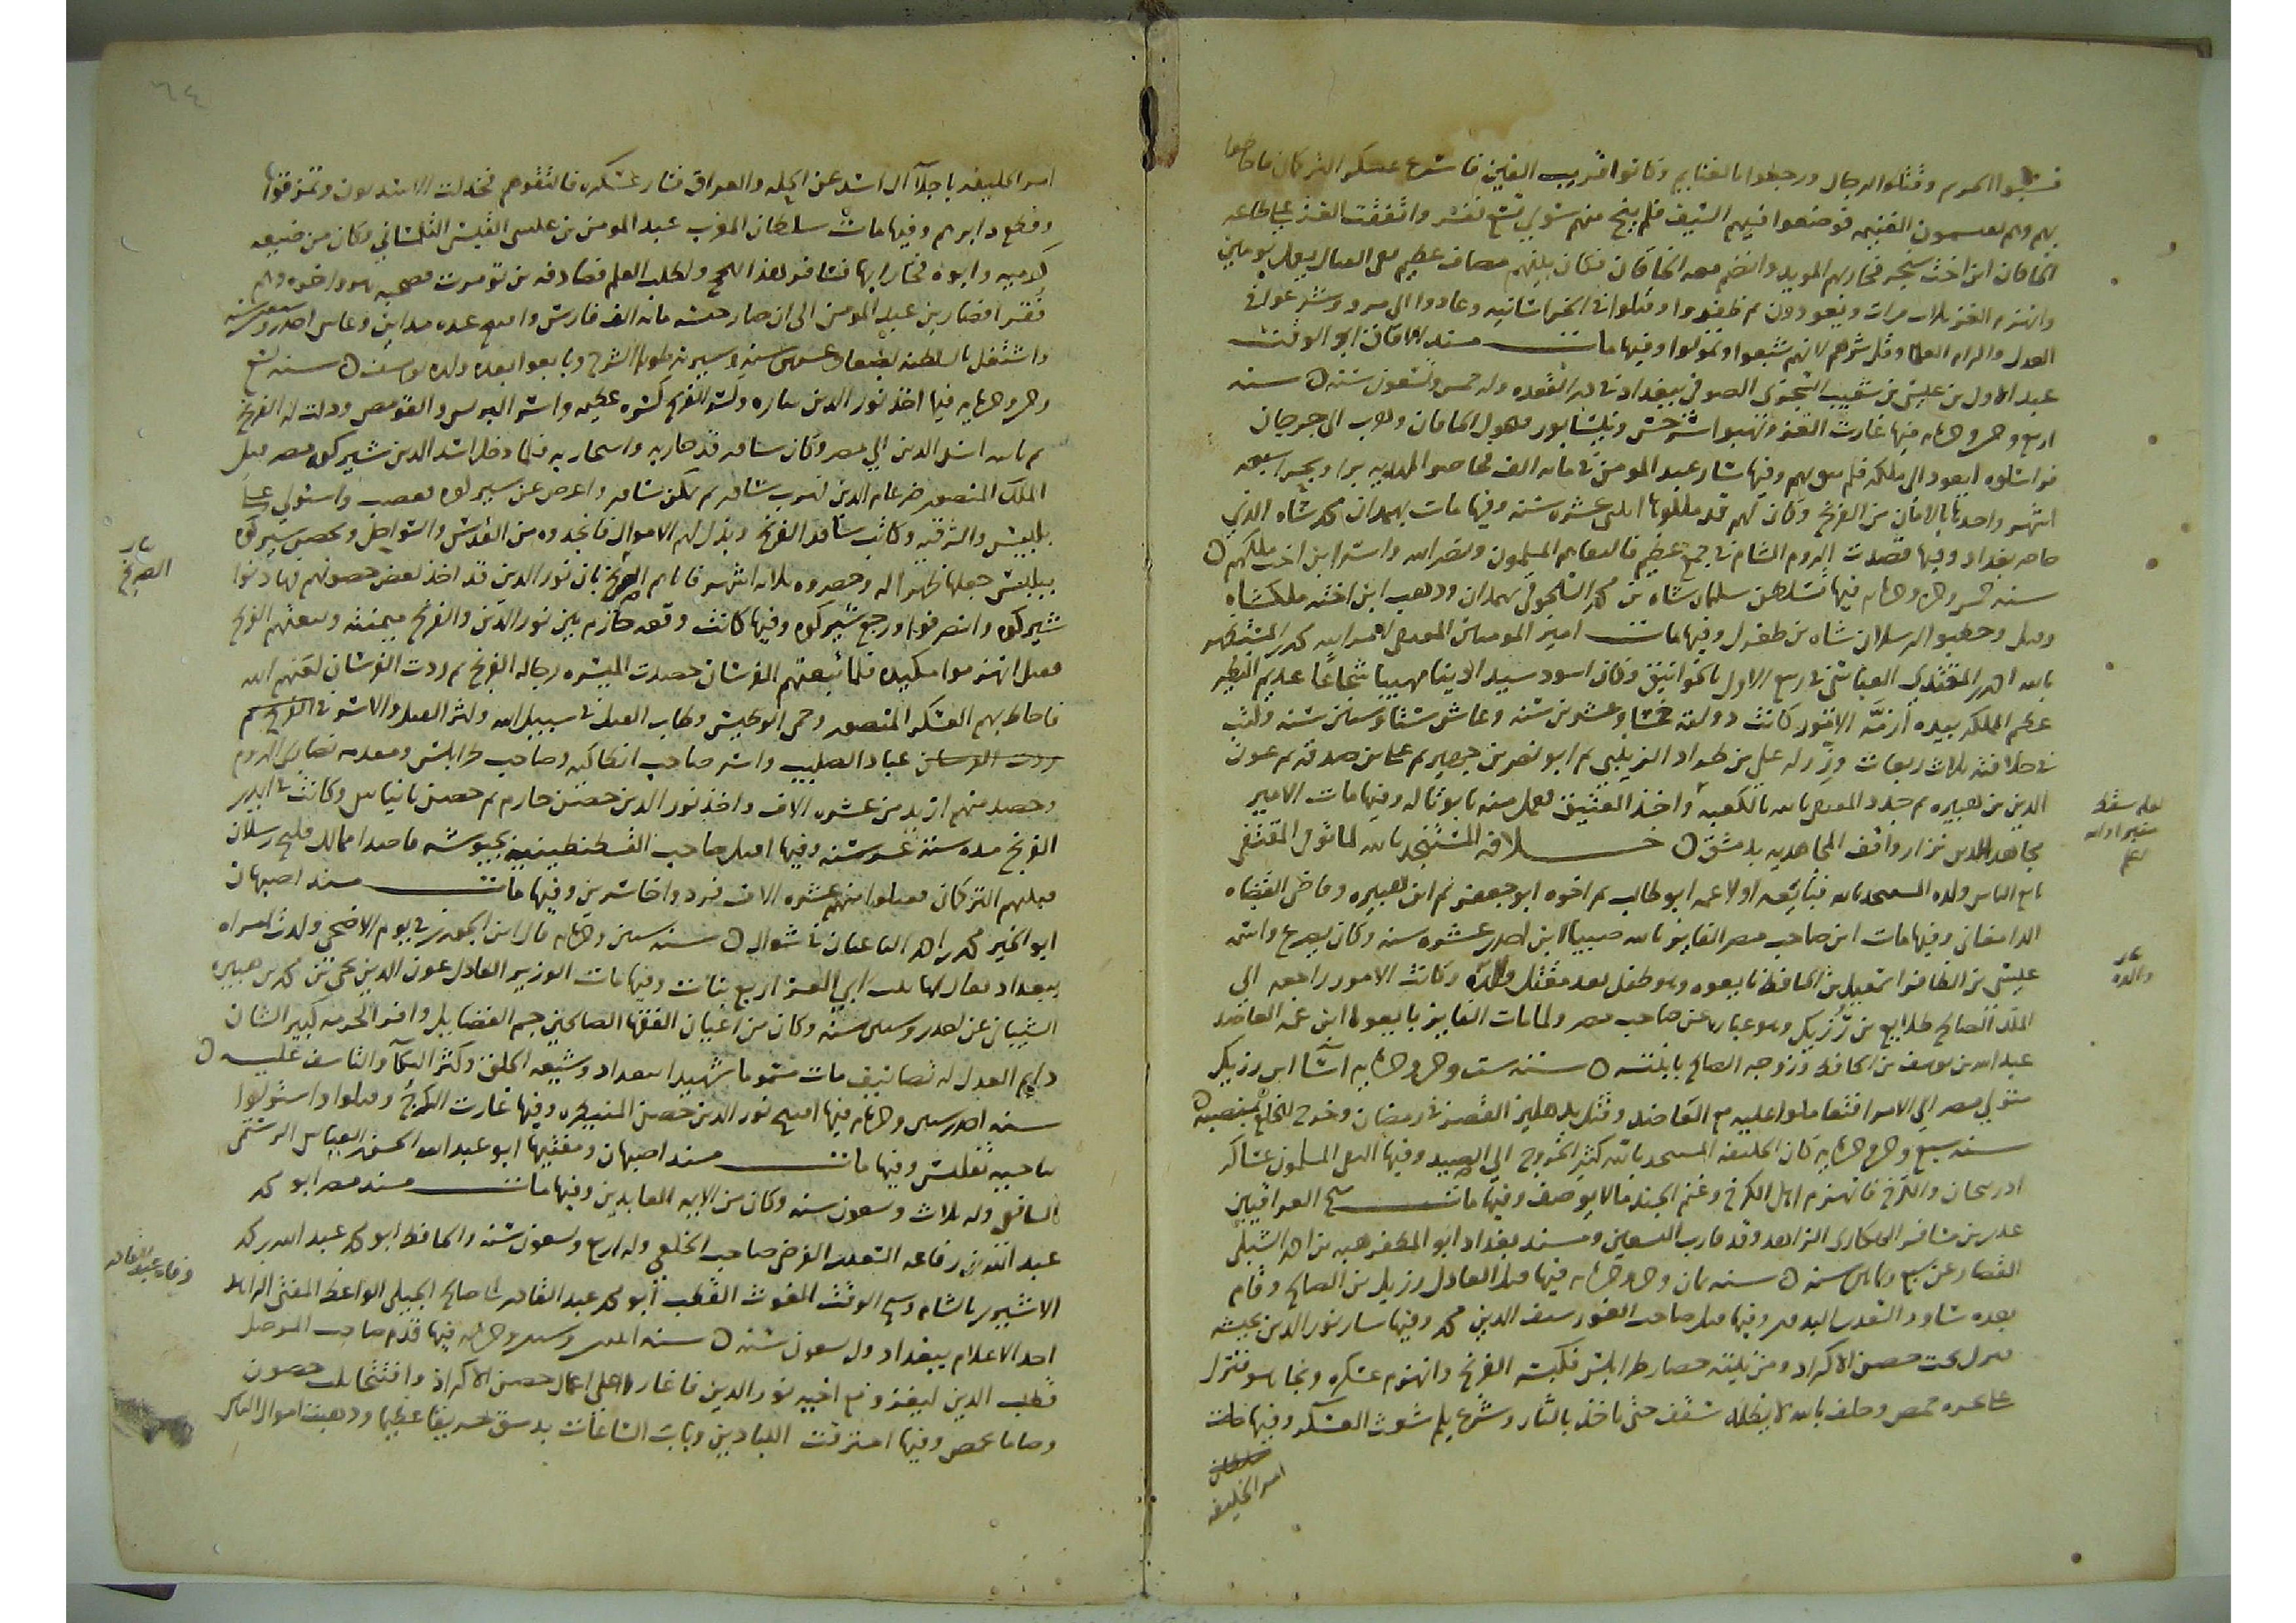 فسبوا الحريم وقتلوا الرجال ورجعوا بالغنايم وكانوا قريب الفين فاسرع عسكر التركمان
بهم وهم يقسمون الغنيمه فوضعوا فيهم السيف فلم ينج منهم سوي تسع نفر واتفقت الغز علي طاعه
الخاقان ابن اخت سنجر فحاربهم المويد وانضم معه الخاقان فكان بينهم مصاف عظيم يومين
وانهزم الغز ثلاث مرات ويعودون ثم ظفروا وقتلوا في الخراسانيه وعادوا الي مرو وشرعوا في
العدل واكرام العلما وقل شرهم لانهم شبعوا وتمولوا وفيها مات مسند الافاق ابو الوقت
عبد الاول بن عيسي بن شعيب السجزي الصوفي ببغداد في ذي القعده وله خمس وتسعون سنه سنه
اربع وخمس وخمسمايه فيها غارت الغز ونهبوا سرخس ونيسابور الخاقان وهرب الي جرجان
فراسلوه ليعود الي ملكه فلم يثق بهم وفيها سار عبد المومن في مايه الف فحاصر المهديه برا وبحرا سبعه
اشهر واخذها بالامان من الفرنج وكان لهم قد ملكوها اثني عشره سنه وفيها مات بهمدان محمد شاه الذي
حاصر بغداد وفيها قصدت الروم الشام في جمع عظيم فالتقاهم المسلمون ونصر الله واسر ابن اخت ملكهم
سنه خمس وخمسين وخمسمايه فيها تسلطن سليمان شاه بن محمد السلجوقي بهمدان وذهب ابن اخته ملكشاه
وقتل وخطبوا لارسلان شاه بن طغرل وفيها مات امير المومنين المقتفي لامر الله محمد بن المستظهر
بالله احمد بن المقتدي العباسي في ربيع الاول بالخوانيق وكان اسود سيد الدنيا مهيبا شجاعا عديم النظير
عظم المملكه بيده ازمة الامور كانت دولته خمسا وعشرين سنه وعاش ستا وستين سنه وكتب
في خلافته ثلاث ربعات وزر له علي بن طراد الزينبي ثم ابو نصر بن جهير ثم علي بن صدقه ثم عون
الدين بن هبيره ثم جدد المقتفي بابا للكعبه واخذ العتيق فعمل منه تابوتا له وفيها مات الامير
مجاهد الدين بزان واقف المجاهديه بدمشق خلافه المستنجد بالله لما توفي المقتفي
بايع الناس ولده المستنجد بالله فبايعه اولا عمه ابو طالب ثم اخوه ابو جعفر ثم ابن هبيره وقاضي القضاه
الدامغاني وفيها مات ابن صاحب مصر الفايز بالله صبيا ابن احدي عشره سنه وكان يصرع واسمه
عيسي بن الظافر اسمعيل بن الحافظ بايعوه وهو طفل بعد مقتل والده وكانت الامور راجعه الي
الملك الصالح طلايع بن رزيك وهو عباره عن صاحب مصر ولما مات الفايز بايعوا ابن عمه العاضد
عبد الله بن يوسف بن الحافظ وزوجه الصالح بابنته سنه ست وخمسين وخمسمايه اسا ابن رزيك
متولي مصر الي الامرا فتعاملوا عليه مع العاضد وقتل بدهليز القصر في رمضان وخرج الخلع بمنصبه
سنه سبع وخمسين وخمسمايه كان الخليفه المستنجد بالله كثير الخروج الي الصيد وفيها التقي المسلمون عساكر
اذربيجان والكرج فانهزم اهل الكرج وغنم الجند ما لا يوصف وفيها مات شيخ العراقيين
عدي بن مسافر الهكاري الزاهد وقد قارب التسعين ومسند بغداد ابو المظفر هبه بن احمد الشبلي
القصار عن سبع وثمانين سنه سنه ثمان وخمسين وخمسمايه فيها قتل العادل رزيك بن الصالح وقام
بعده شاور السعدي وفيها قتل صاحب الغور سيف الدين محمد وفيها سار نور الدين بجيشه
فنزل تحت حصن الاكراد ومن نيته حصار طرابلس فكبسته الفرنج وانهزم عسكره ونجا هو فنزل
علي بحيره حمص وحلف بالله لا يظله سقف حتي ياخذ بالثار وشرع يلم شعث العسكر وفيها مات
امر الخليفه
بوالده
امر الخليفه باجلا ال اسد عن الحله والعراق فسار عسكره فالتقوهم فخذلت الاسديون وتمزقوا
وقطع دابرهم وفيها مات سلطان المغرب عبد المومن بن علي القيسي التلمساني وكان من ضيعه
كوميه وابوه فخاراها فسافر لهذا الحج ولطلب العلم فصادفه بن تومرت فصحبه هو واخوه وهم
فقرا فصار بن عبد المومن الي ان صار جيشه مايه الف فارس وافتتح عده مداين وعاش احدي وسبعين سنه
واشتغل بالسلطنه بضعا وعشرين سنه وسيرته طويله الشرح وبايعوا بعده ولده يوسف سنه تسع
وخمسين وخمسمايه فيها اخذ نور الدين ثاره وكسر الفرنج كسره عظيمه واسر البرنس والقومص وذلت له الفرنج
ثم نايبه اسد الدين الي مصر وكان شاور قد حاربه واستجار به فلما دخل اسد الدين شيركوه مصر قتل
الملك المنصور ضرغام الذي هرب شاور ثم تمكن شاور واعرض عن شيركوه فغضب واستولي علي
بلبيس والشرقيه وكاتب شاور الفرنج وبذل لهم الاموال فانجدوه من القدس والسواحل وتحصن شيركوه
ببلبيس جعلها ظهرا له وحصروه ثلاثه اشهر فاتاهم الصريخ بان نور الدين قد اخذ بعض حصونهم فهادنوا
شيركوه وانصرفوا ورجع شيركوه وفيها كانت وقعه حارم بين نور الدين والفرنج ميمنته وتبعتهم الفرنج
فقيل انهزموا مكيده فلما تبعتهم الفرسان حصدت الميسره رجاله الفرنج ثم ردت الفرسان لعنهم الله
فاحاط بهم العسكر المنصور وحمي الوطيس وطاب القتل في سبيل الله وكثر القتل والاسر في الفرنج ثم
عباد الصليب واسر صاحب انطاكيه وصاحب طرابلس ومقدم نصاري الروم
وحصد منهم ازيد من عشره الاف واخذ نور الدين حصن حارم ثم حصن بانياس وكانت في ايدي
الفرنج مده ستة عشر سنه وفيها اقبل صاحب القسطنطينيه بجيوشه قاصدا ممالك قليج رسلان
فبيتهم التركمان فقتلوا منهم عشره الاف فردوا خاسرين وفيها مات مسند اصبهان
ابو الخير محمد بن احمد الباغبان في شوال سنه ستين وخمسمايه قال ابن الجوزي في يوم الاضحي ولدت امراه
ببغداد يقال لها بنت ابي العز اربع بنات وفيها مات الوزير العادل عون الدين يحيي بن محمد بن هبيره
الشيباني عن احدي وستين سنه وكان من اعيان الفقها الصالحين جم الفضايل وافر الحرمه كبير الشان
دايم العدل له تصانيف مات مسموما شهيدا ببغداد وشيعه الخلق وكثر البكا والتاسف عليه
سنه احدي وستين وخمسمايه فيها افتتح نور الدين حصن المنيطره وفيها غارت الكرج وقتلوا واستولوا
ناحيه تفليس وفيها مات مسند اصبهان ومفتيها ابو عبد الله الحسن بن العباس الرستمي
الشافعي وله ثلاث وتسعون سنه وكان من الايمه العابدين وفيها مات مسند مصر ابو محمد
عبد الله بن رفاعه السعدي الفرضي صاحب الخلعي وله اربع وتسعون سنه والحافظ ابو محمد عبد الله بن محمد
الاشيري بالشام وشيخ الوقت الغوث القطب ابو محمد عبد القادر بن ابي صالح الجيلي الواعظ المفتي الزاهد
احد الاعلام ببغداد وله تسعون سنه سنه اثنين وستين وخمسمايه فيها قدم صاحب الموصل
قطب الدين ليغزو مع اخيه نور الدين فاغار واعلي اعمال حصن الاكراد وافتتحا ثلث حصون
وصاما بحمص وفيها احترقت اللبادين وباب الساعات بدمشق حريقا عظيما وذهبت اموال الناس
وفاه عبد القادر